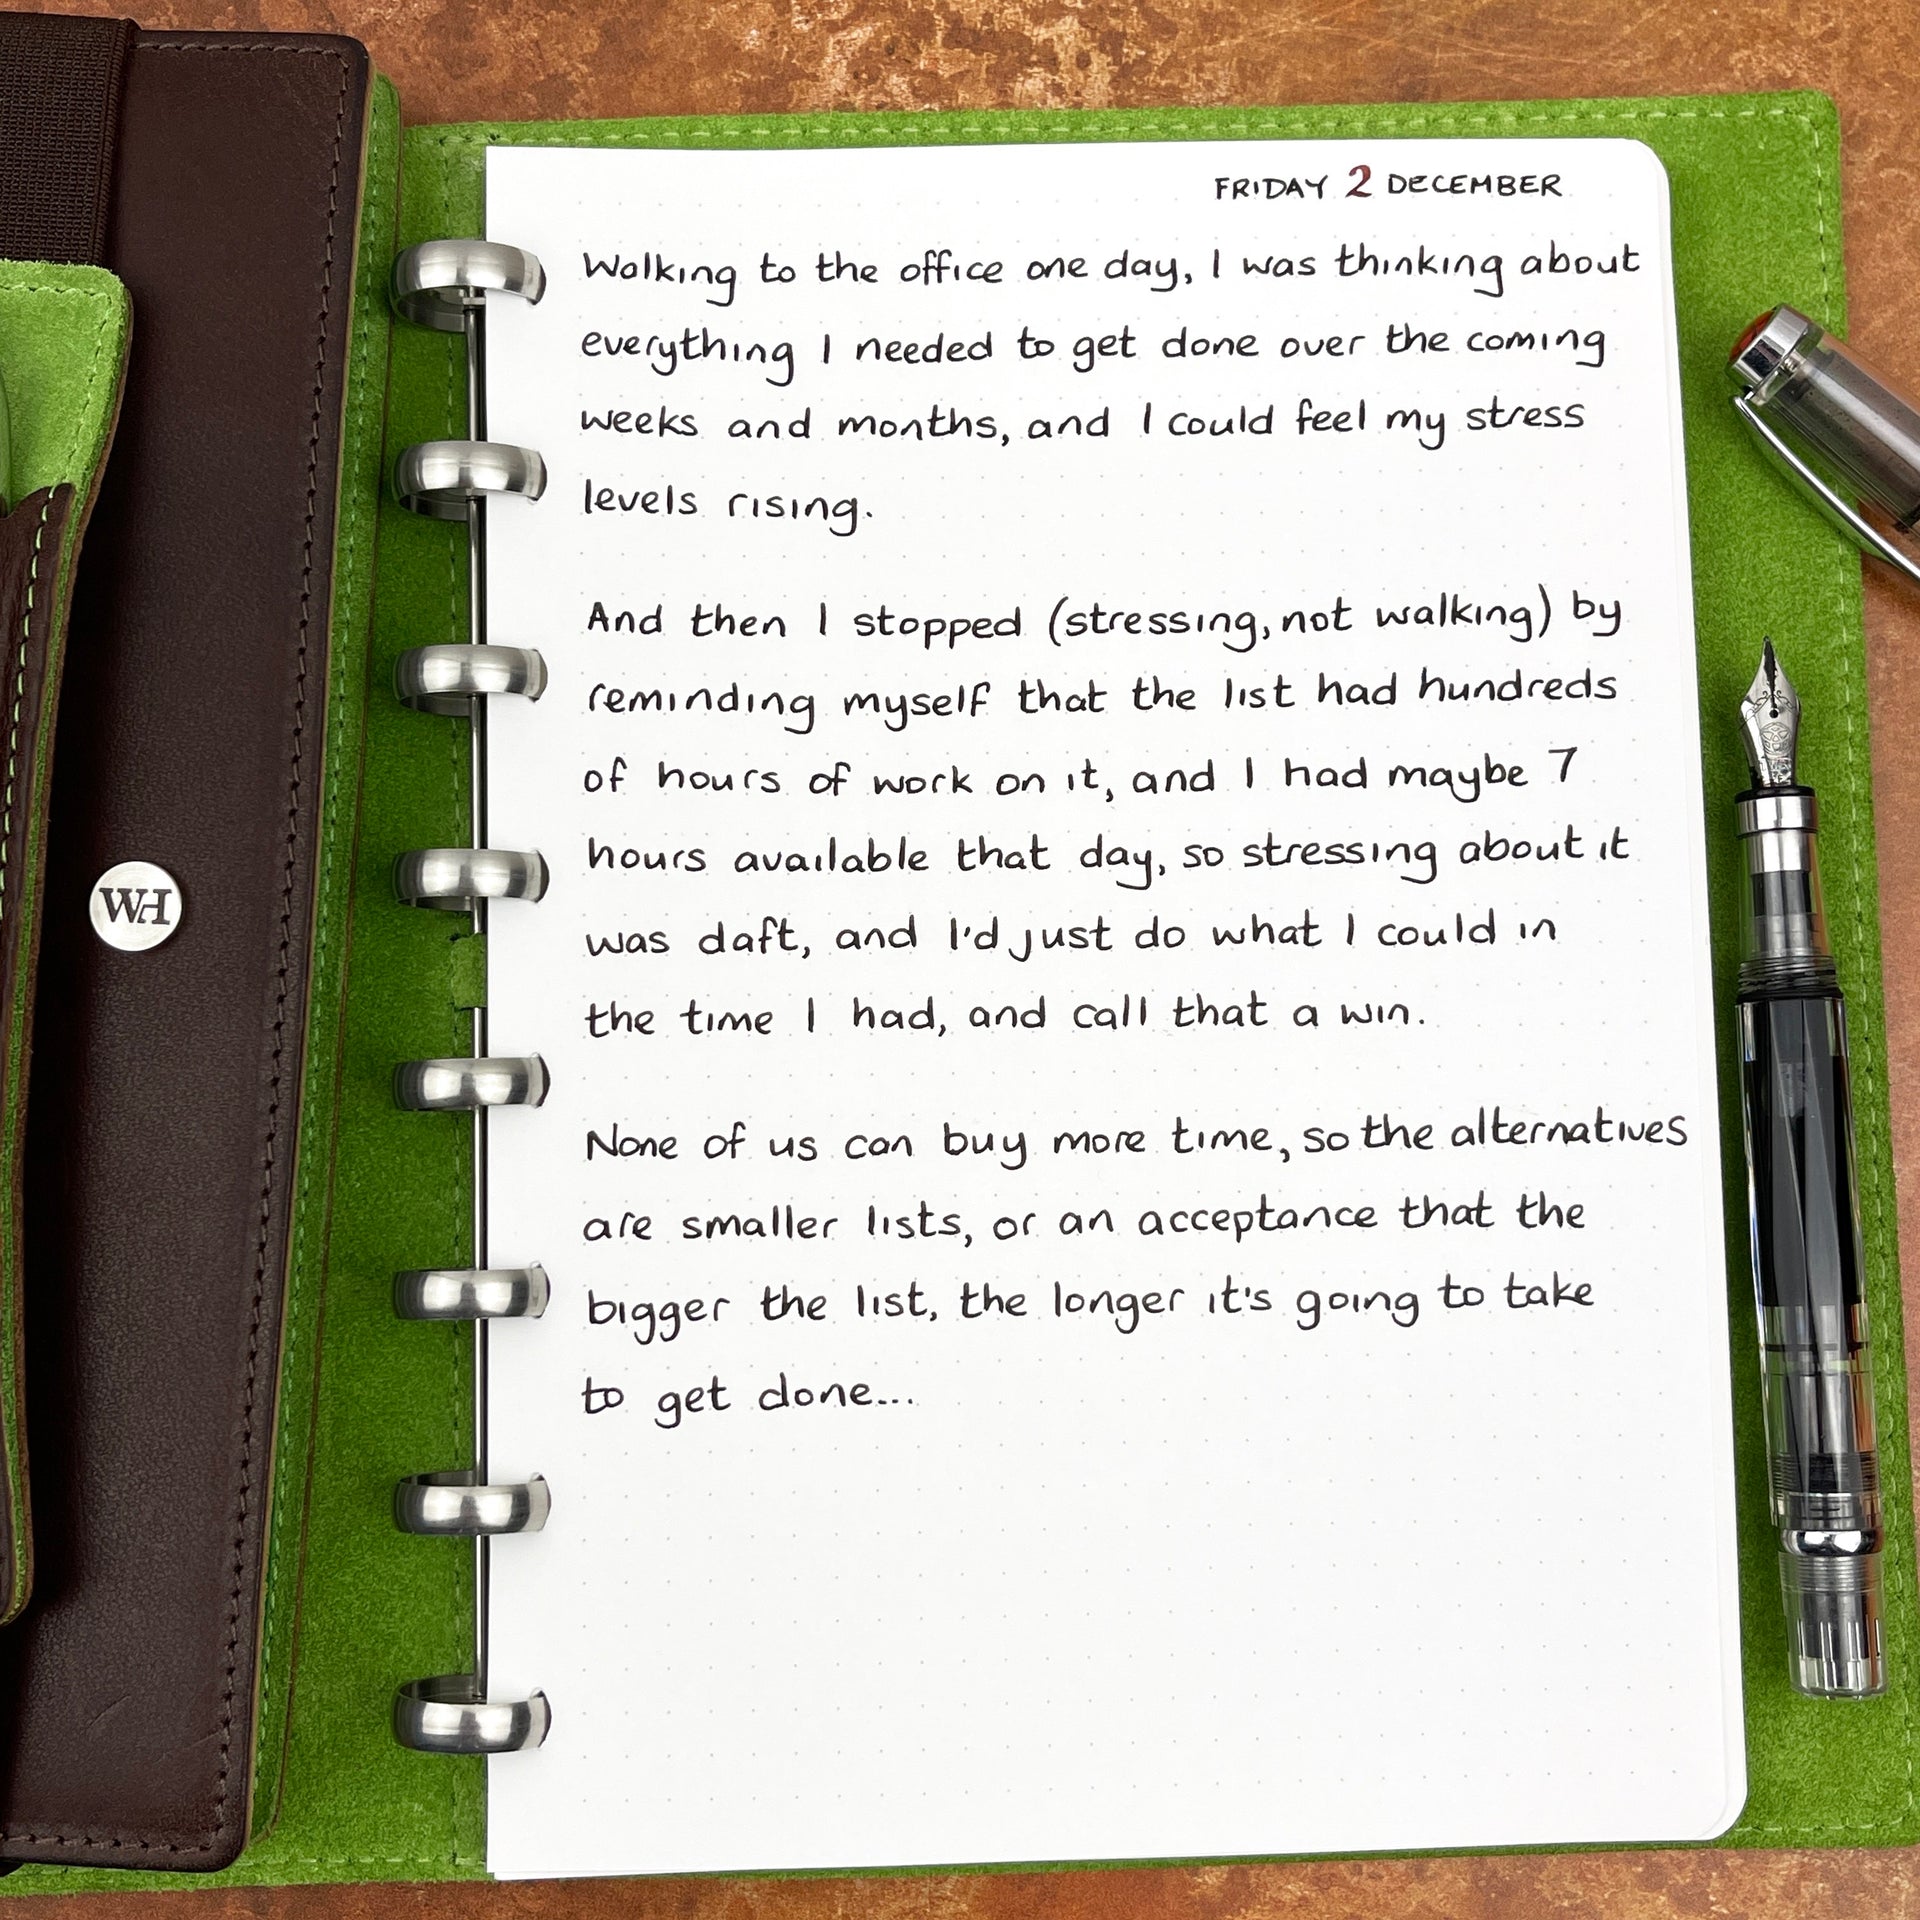 FRIDAY 2 DECEMBER
Walking to the office one day, I was thinking about
everything I needed to get done over the coming
weeks and months, and I could feel my stress
levels rising.
And then I stopped (stressing, not walking) by
reminding myself that the list had hundreds
of hours of work on it, and I had maybe 7
hours available that day, so stressing about it
was daft, and I'd just do what I could in
the time I had, and call that a win.
None of us can buy more time, so the alternatives
are smaller lists, or an acceptance that the
bigger the list, the longer it's going to take
to get done...
WH